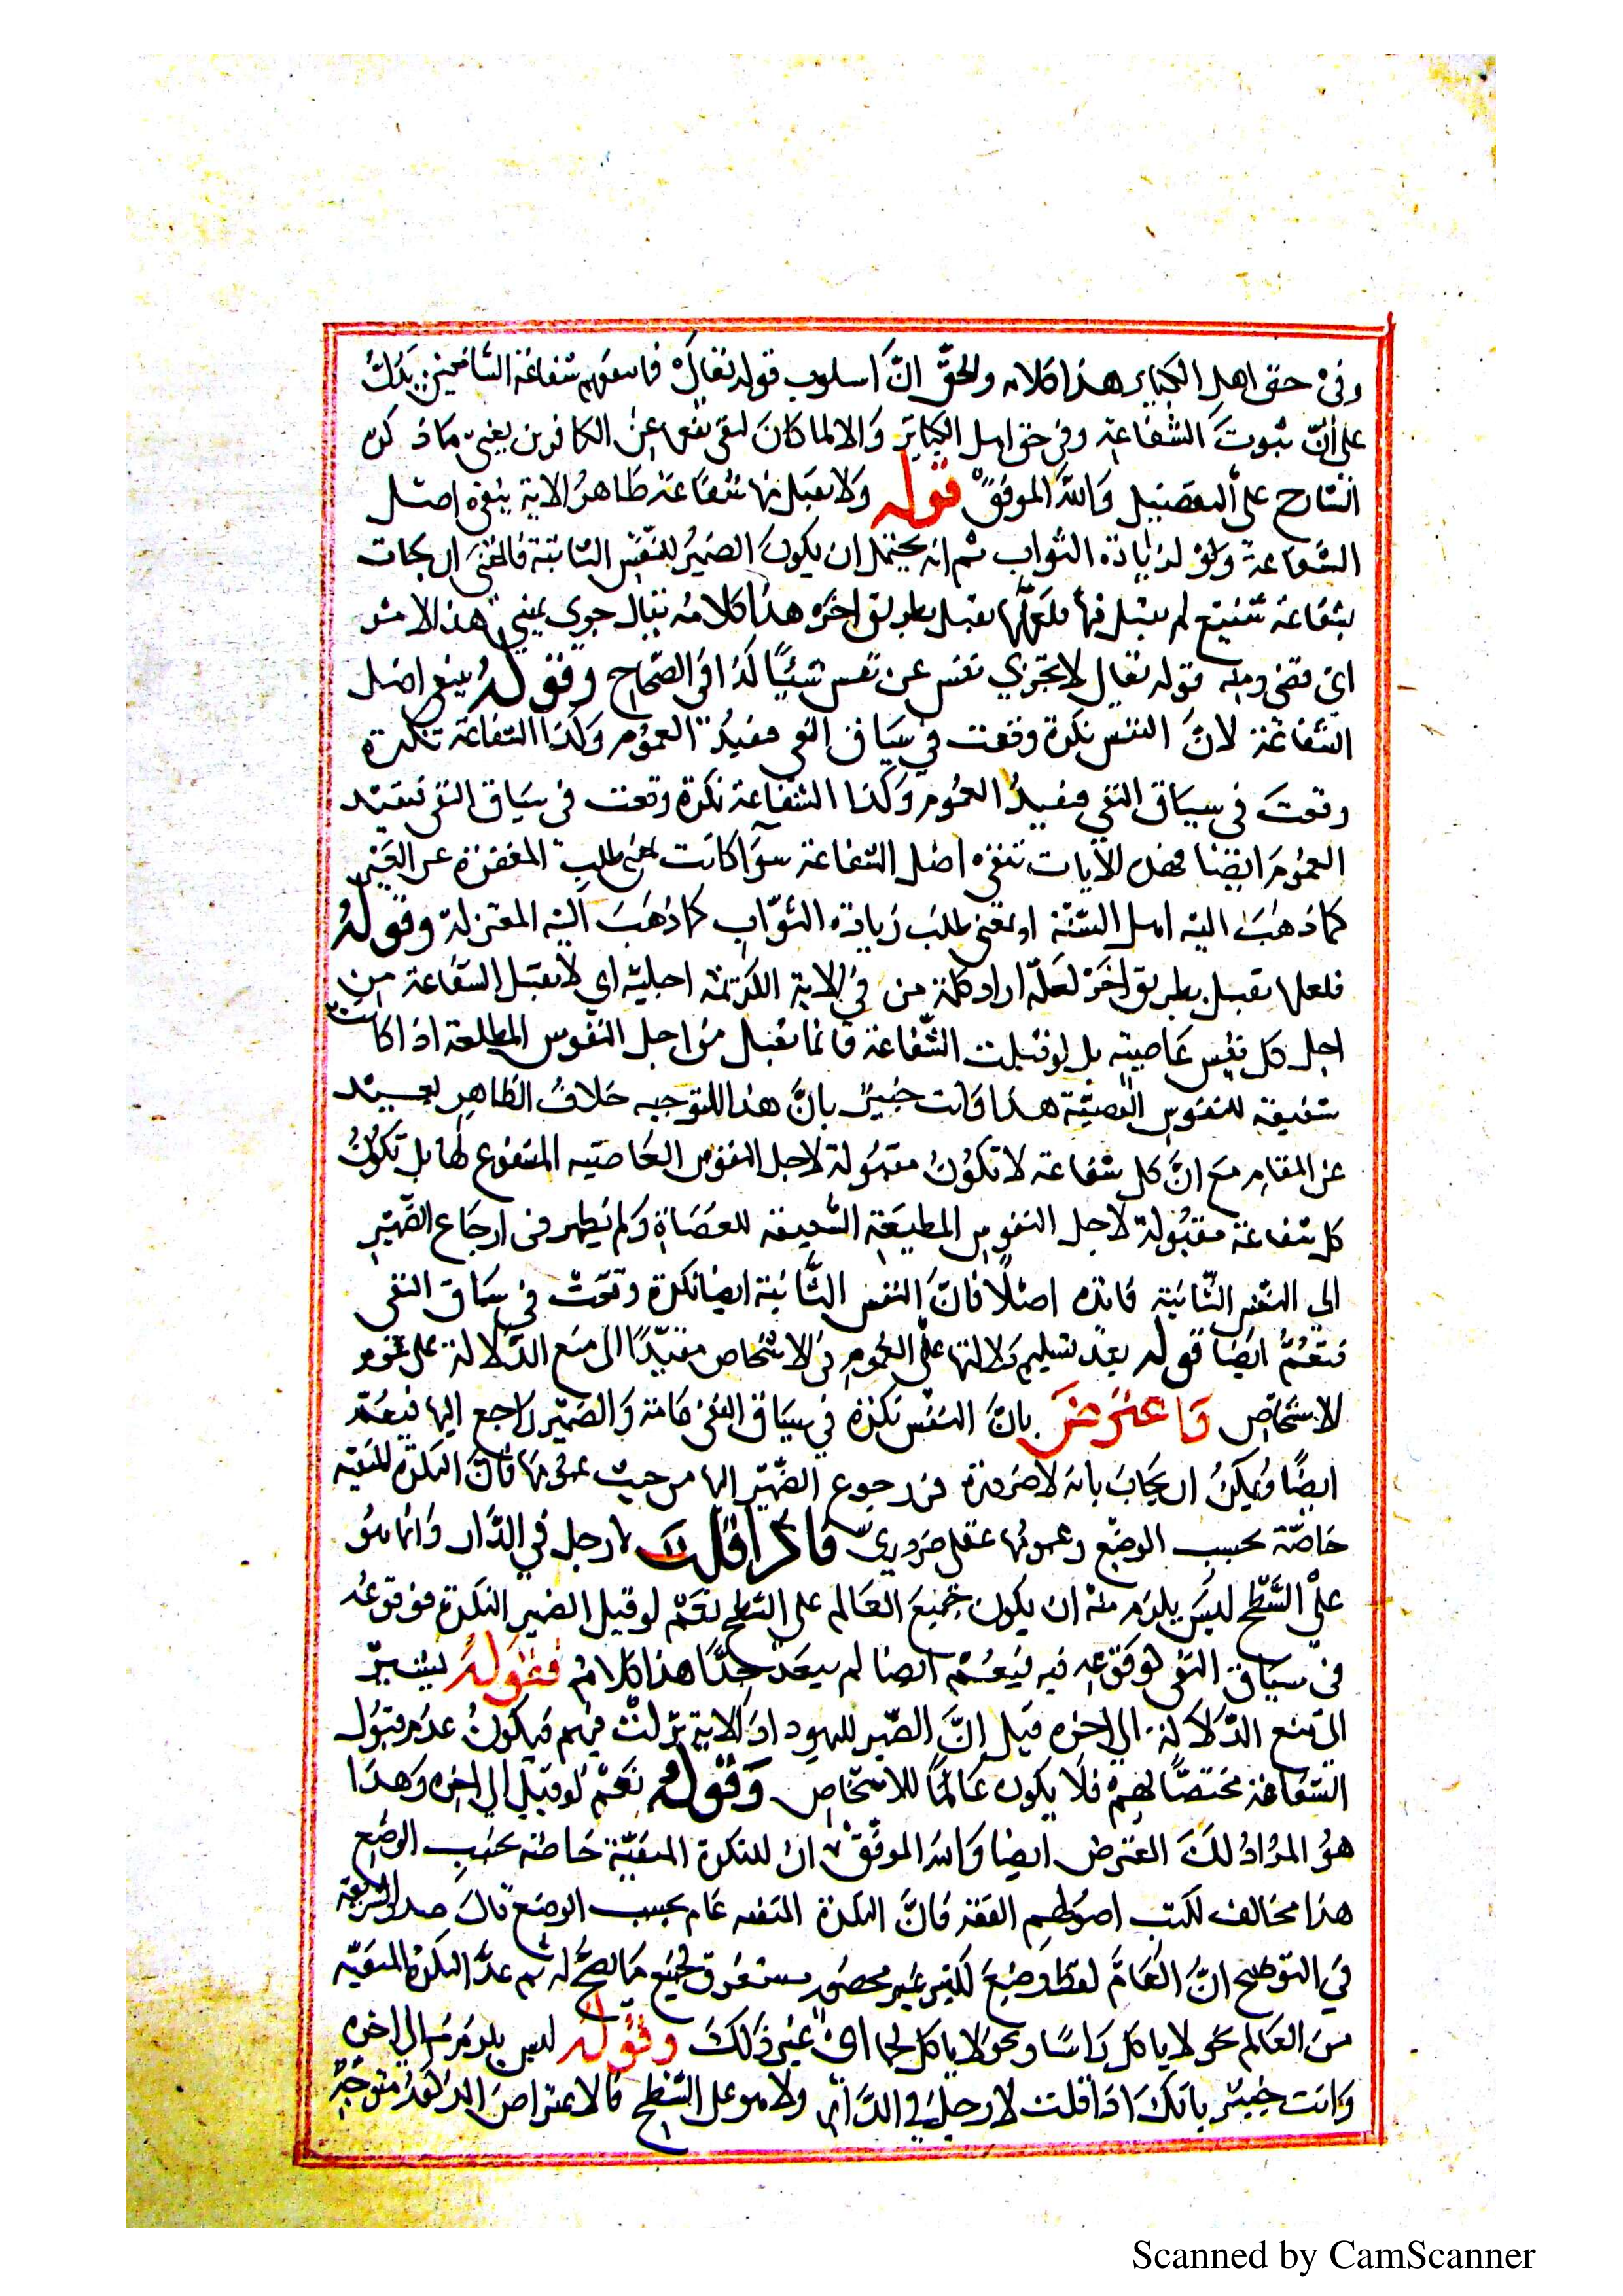 وفي حق اهل الكبائر هذا كلامه والحق انّ اسلوب قوله تعالى فما تنفعهم شفاعة الشافعين يدلّ
على انّ ثبوت الشفاعة وفي حق اهل الكبائر والا لما كان لنفي نفعها عن الكافرين يعني ما ذكره
الشارح على التفصيل والله الموفق قوله ولا يقبل منها شفاعة ظاهر الاية ينفي اصل
الشفاعة ولو لزيادة الثواب ثم انه يحتمل ان يكون الضمير للنفس الثانية فالمعنى ان جات
بشفاعة شفيع لم يقبل منها فلعلّها تقبل بطريق اخر هذا كلامه يقال جزي عني هذا الامر
اي قضى ومنه قوله تعالى لا تجزي نفس عن نفس شيئًا كذا في الصحاح وقوله ينفي اصل
الشفاعة لانّ النفس نكرة وقعت في سياق النفي مفيدُ العموم وكذا الشفاعة نكرة
وقعت في سياق النفي مفيدُ العموم وكذا الشفاعة نكرة وقعت في سياق النفي فيفيد
العموم ايضا الآيات تنفي اصل الشفاعة سوآ كانت بمعنى طلب المغفرة عن الغير
كما ذهب اليه اهل السّنّة او بمعنى طلب زيادة الثوّاب كما ذهب اليه المعتزلة وقوله
فلعلها تقبل بطريق اخر لعلّه اراد كلمة من في الاية الكريمة اجليّه اي لا تقبل الشفاعة من
اجل كل نفس عاصيته بل لو قبلت الشّفاعة فانما تقبل من اجل النفوس المطلعة اذا كانت
شفيعة للنفوس العصيّة هذا وانت خبيرٌ بانّ هذا التوجيه خلافُ الظاهر بعيد
عن المقام مع انّ كل شفاعة لا تكونُ مقبولة لاجل النفوس العاصيه المشفوع لها بل تكون
كل شفاعة مقبولة لاجل النفوس المطيعة الشفيعة للعصاة ولم يظهر في ارجاع الضّمير
الي النّفس الثّانية فائدة اصلًا فانّ النفس الثّانية ايضا نكرة وقعت في سياق النفي
فتعمّ ايضا قوله بعد تسليم دلالتها على العموم في الاشخاص مقيّدًا الى منع الدّلالة على عموم
الاشخاص واعترض بانّ النّفس نكرة في سياق النفي عامّة والضّمير راجع اليها فيعمّ
ايضًا ويمكنُ ان يجاب بانه لا ضرورة في رجوع الضّمير اليها من حيث عمومها فانّ النكرة المنفيّة
خاصّة بحسب الوضع وعمومها عقلي ضروري فاذا قلت لا رجل في الدّار وانما هو
على السّطح ليس يلزم منه ان يكون جميع العالم على السّطح نعم لو قيل الضمير النكرة فوقوعه
في سياق النفي كوقوعه فيه فيعمّ ايضا لم يبعد جدًّا هذا كلامه فقوله يشير
الى منع الدّلالة الى اخره قيل انّ الضّمير لليهود اذ الاية نزلت فيهم فيكونُ عدم قبول
الشّفاعة مختصًّا بهم فلا يكون عامًّا للاشخاص وقوله نعم لو قيل الى اخره وهذا
هو المراد لك المعترض ايضا والله الموفّق ان للنكرة المنفيّة خاصّة بحسب الوضع
هذا مخالف لكتب اصولهم الفقه فانّ النكرة المنفيه عام بحسب الوضع قال صدر الشريعة
في التوضيح انّ العامّ لفظ وضع لكثير غير محصور مستغرق لجميع ما يصلح له ثم عدّ النكرة المنفيّة
من العالم نحو لا ياكل راسًا ونحو لا ياكل لحما الى غير ذلك وقوله ليس يلزم منه الى اخره
وانت خبير بانّك اذا قلت لا رجل في الدّار ولا هو على السّطح فالاعتراض المذكور متوجّه
Scanned by CamScanner